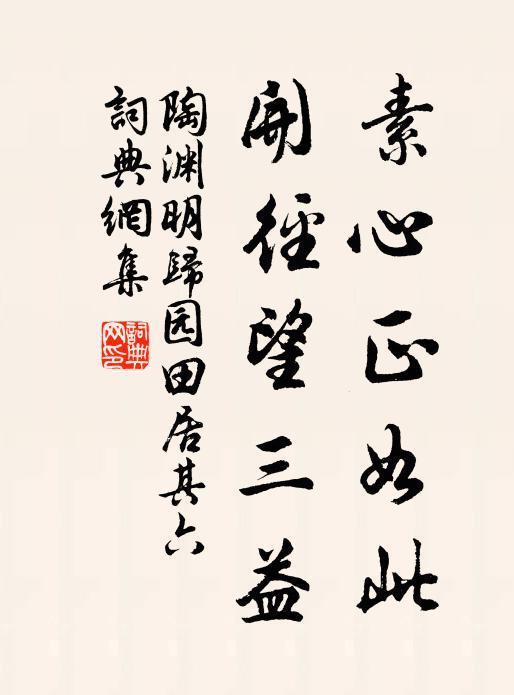 素心正如此
開徑望三益
陶渊明歸园田居其六
詞典網集
詞典網印